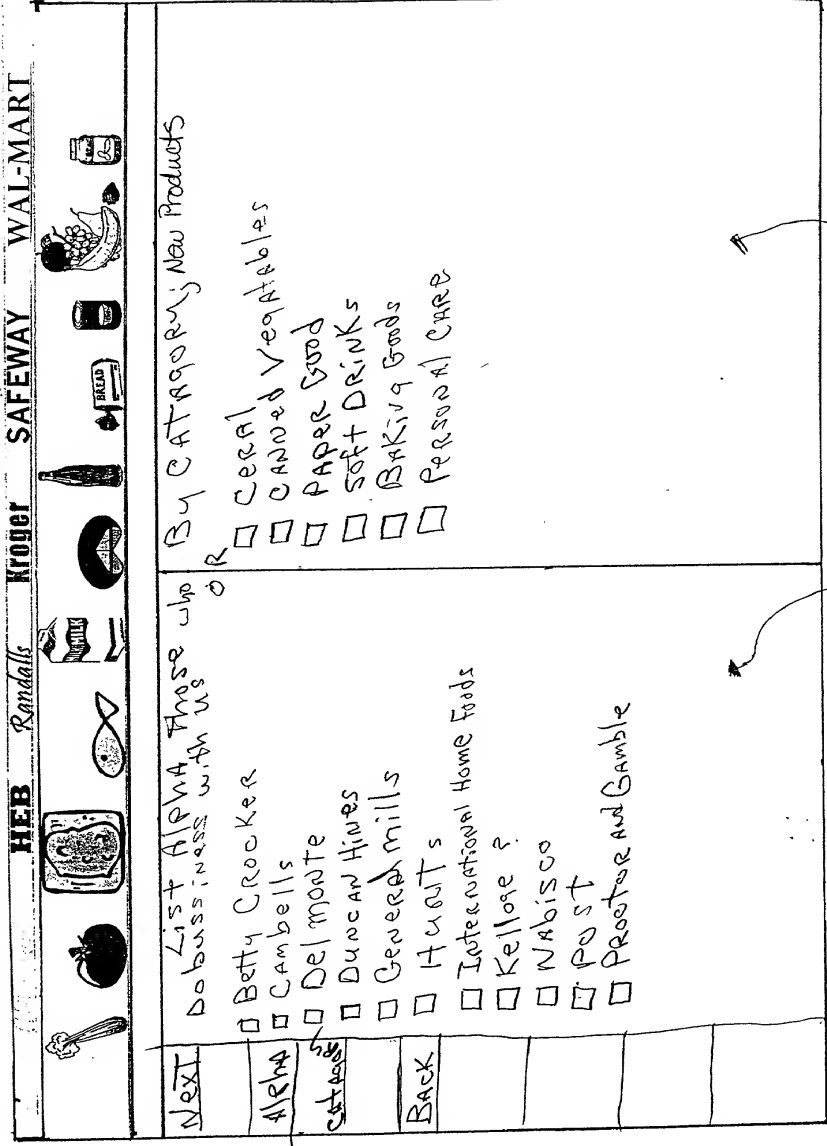 HEB Randalls Kroger SAFEWAY WAL-MART
MILK
BREAD
Next
Alpha
Catagory
Back
List Alpha, Those who
Dobussiness with us
OR
□ Betty Crocker
□ Cambells
□ Del monte
□ Duncan Hines
□ General mills
□ Hunts
□ International Home Foods
□ Kelloge ?
□ Nabisco
□ Post
□ Proctor And Gamble
By CATAGORY; New Products
□ Ceral
□ Canned Vegatables
□ Paper Good
□ Soft Drinks
□ Baking Goods
□ Personal Care